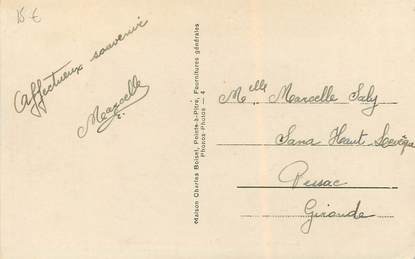 15 €
Affectueux souvenir
Marcelle
Maison Charles Boisel, Pointe-à-Pitre, Fournitures générales
Phonos-Photos — 4
Melle Marcelle Saly
Sana Haut Lévèque
Pessac
Gironde